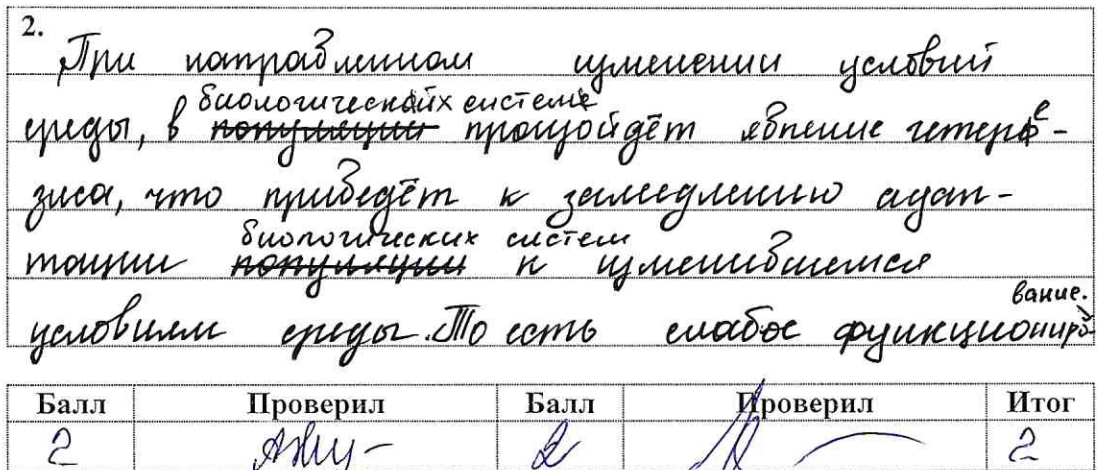 2.
При направленном изменении условий
биологических системе
среды, в популяции произойдёт явление гетере-
зиса, что приведёт к замедлению адап-
биологических систем
тации популяции к изменившемся
вание.
условиям среды. То есть слабое функциониро
Балл Проверил Балл Проверил Итог
2 2 2